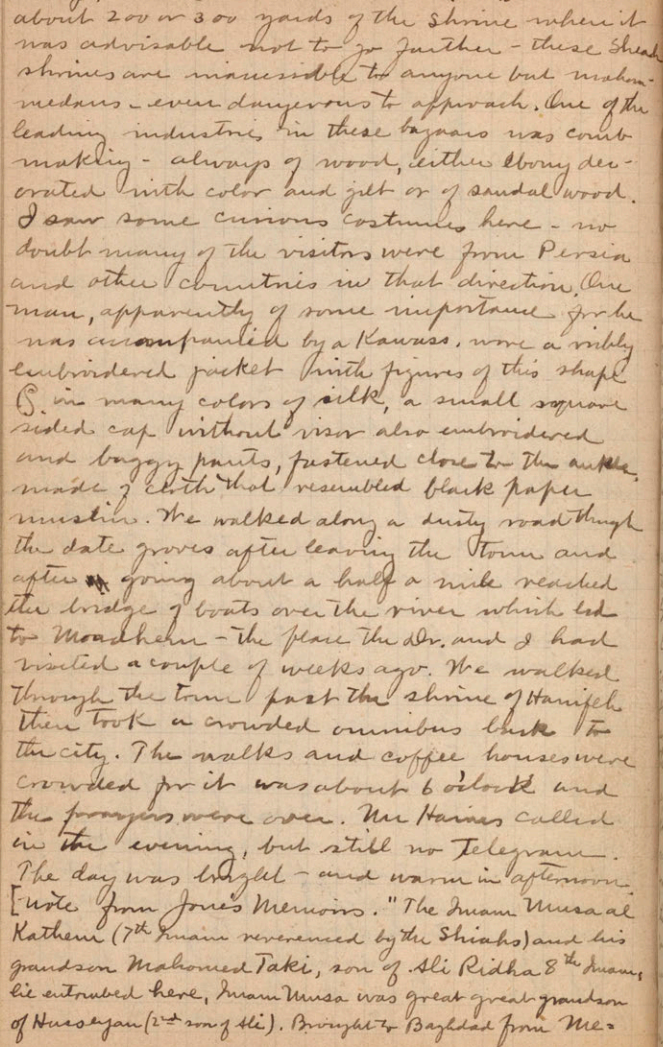 about 200 or 300 yards of the shrine where it
was advisable not to go further - these Sheah
shrines are inaccessible to anyone but moham-
medans - even dangerous to approach. One of the
leading industries in these bazaars was comb
making - always of wood, either ebony dec-
orated with color and gilt or of sandal wood.
I saw some curious costumes here - no
doubt many of the visitors were from Persia
and other countries in that direction. One
man, apparently of some importance for he
was accompanied by a Kawass, wore a richly
embroidered jacket with figures of this shape
in many colors of silk, a small square
sided cap without visor also embroidered
and baggy pants, fastened close to the ankle,
made of cloth that resembled black paper
muslin. We walked along a dusty road though
the date groves after leaving the town and
after going about a half a mile reached
the bridge of boats over the river which led
to Moadhem - the place the Dr. and I had
visited a couple of weeks ago. We walked
through the town past the shrine of Hanifeh
then took a crowded omnibus back to
the city. The walks and coffee houses were
crowded for it was about 6 o'clock and
the prayers were over. Mr Haines called
in the evening, but still no Telegram.
The day was bright - and warm in afternoon.
[note from Jones Memoirs. "The Imam Musa al
Kathem (7th Imam reverenced by the Shiahs) and his
grandson Mahomed Taki, son of Ali Ridha 8th Imam,
lie entombed here, Imam Musa was great great grandson
of Husseyan (2nd son of Ali). Brought to Baghdad from Me=